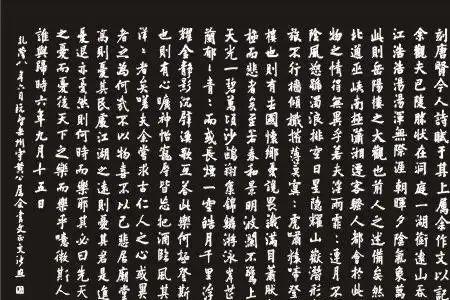 刻唐賢今人詩賦于其上屬余作文以記
余觀夫巴陵勝狀在洞庭一湖銜遠山吞
江浩浩湯湯渾無際涯朝暉夕陰氣象萬
此則岳陽樓之大觀也前人之述備矣然
北通巫峽南極瀟湘遷客騷人都會於此
物之情得無異乎若夫淫雨霏々連月不
陰風怒號濁浪排空日星隱耀山嶽潛形
旅不行檣傾楫摧薄暮冥々虎嘯猿啼登
樓也則有去國懷鄉憂讒畏譏滿目蕭然
極而悲者矣至若春和景明波瀾不驚上
天光一碧萬頃沙鷗翔集錦鱗游泳岸芷
蘭郁々青々而或長煙一空皓月千里浮
耀金靜影沉璧漁歌互答此樂何極登斯
也則有心曠神怡寵辱皆忘把酒臨風其
洋々者矣嗟夫余嘗求古仁人之心或異
者之為何哉不以物喜不以己悲居廟堂
高則憂其民處江湖之遠則憂其君是進
憂退亦憂然則何時而樂耶其必曰先天
之憂而憂後天下之樂而樂乎噫微斯人
誰與歸時六年九月十五日